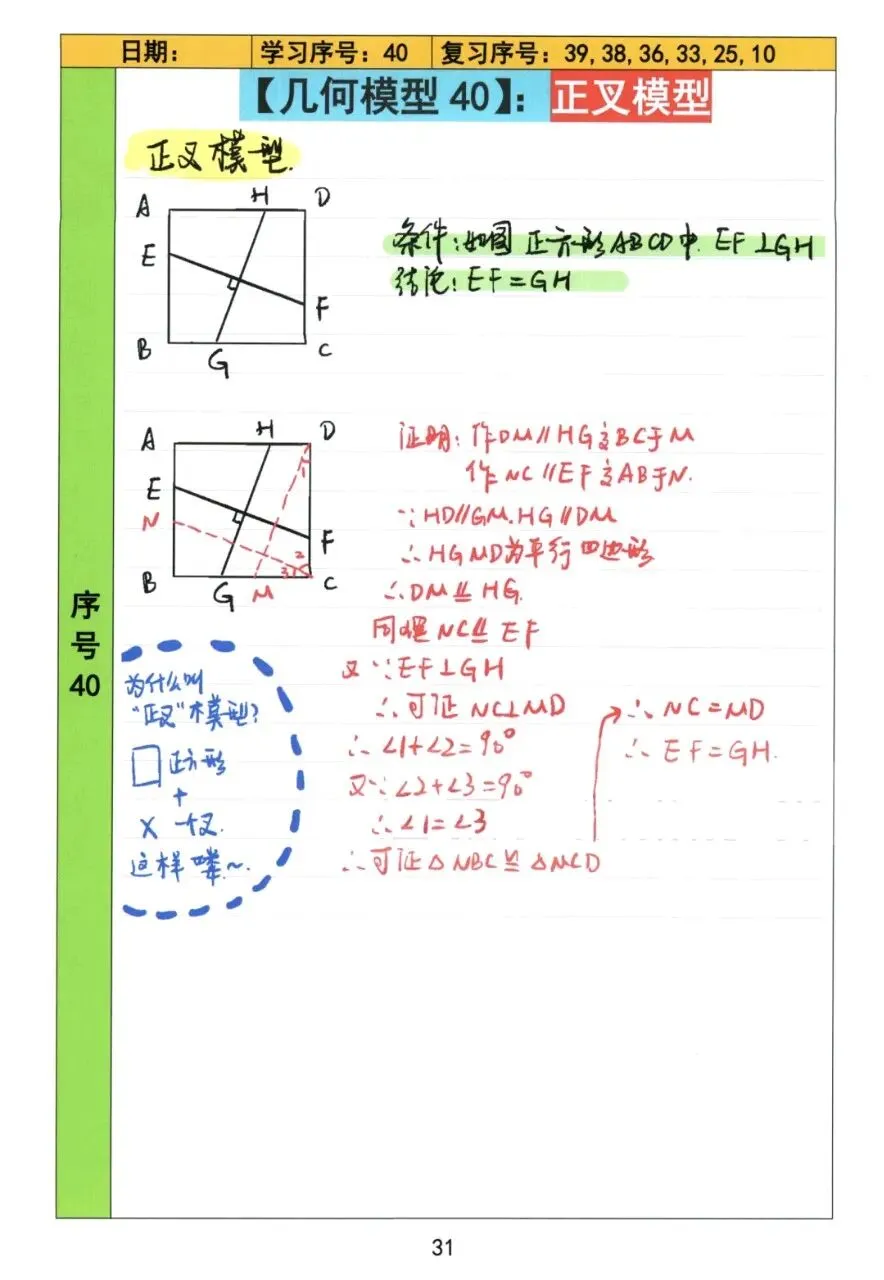 日期： 学习序号：40 复习序号：39,38,36,33,25,10
【几何模型 40】：正叉模型
正叉模型.
A H D
E
F
B G C
条件：如图 正方形ABCD中. EF⊥GH
结论：EF=GH
A H D
E
N
F
B G M C
1
2
3
证明：作DM∥HG交BC于M
作NC∥EF交AB于N.
∵HD∥GM.HG∥DM
∴HGMD为平行四边形
∴DM⫫HG.
同理NC⫫EF
又∵EF⊥GH
∴可证 NC⊥MD
∴∠1+∠2=90°
又∵∠2+∠3=90°
∴∠1=∠3
∴可证△NBC≌△MCD
∴NC=MD
∴EF=GH.
序号40
为什么叫
“正叉”模型？
正方形
+
X 一叉.
这样喽.~.
31